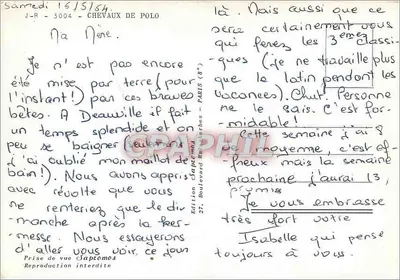 Samedi 16/5/64
J-R - 3004 - CHEVAUX DE POLO
Ma Mère.
Je n'ai pas encore
été mise par terre (pour
l'instant!) par ces braves
bêtes. A Deauville il fait
un temps splendide et on
peu se baigner (seulement
j'ai oublié mon maillot de
bain!). Nous avons appris
avec révolte que vous
ne renteriez que le di-
manche après la ker-
messe. Nous essayerons
d'aller vous voir ce jour
Prise de vue Japtemos
Reproduction interdite
Edition Japtemos
27, Boulevard - PARIS (8e)
là. Mais aussi que ce
sera certainement vous
qui ferez les 3 èmes classi-
ques (je ne travaille plus
que le latin pendant les
vacances). Chut! Personne
ne le sais. C'est for-
midable!
Cette semaine j'ai 8
de moyenne, c'est af-
freux mais la semaine
prochaine j'aurai 13,
promis
Je vous embrasse
très fort votre
Isabelle qui pense
toujours à vous.